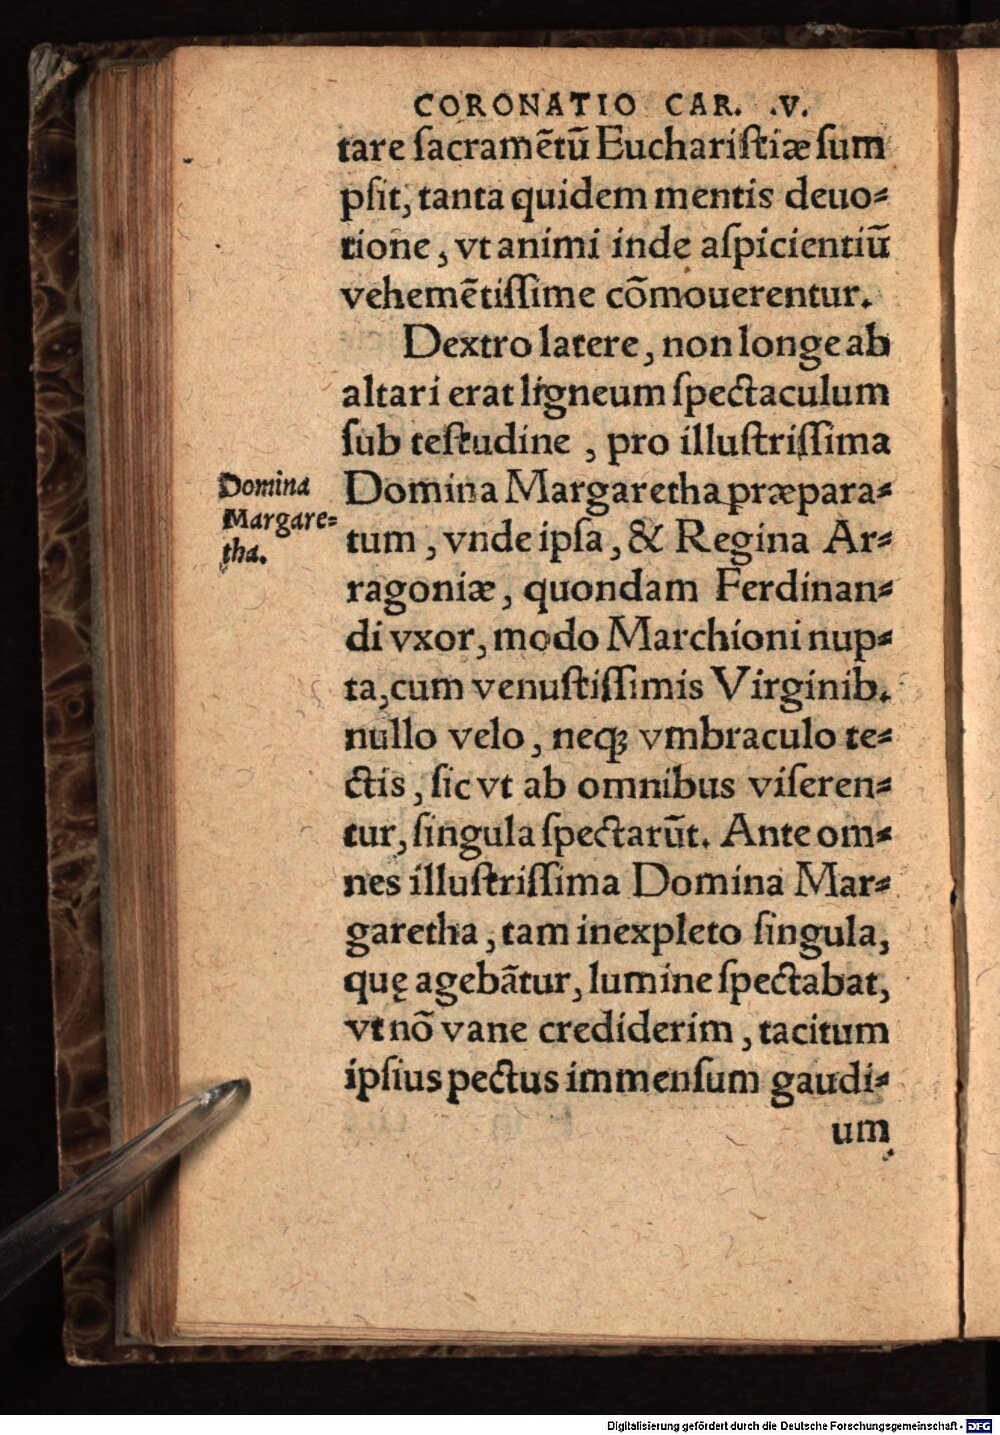 CORONATIO CAR. .V.
tare ſacramẽtũ Euchariſtiæ ſum
pſit, tanta quidem mentis deuo⸗
tione, vt animi inde aſpicientiũ
vehemẽtiſſime cõmouerentur.
Dextro latere, non longe ab
altari erat ligneum ſpectaculum
ſub teſtudine, pro illuſtriſſima
Domina
Margare⸗
tha.
Domina Margaretha præpara⸗
tum, vnde ipſa, & Regina Ar⸗
ragoniæ, quondam Ferdinan⸗
di vxor, modo Marchioni nup⸗
ta, cum venuſtiſſimis Virginib.
nullo velo, neqꝫ vmbraculo te⸗
ctis, ſic vt ab omnibus viſeren⸗
tur, ſingula ſpectarũt. Ante om⸗
nes illuſtriſſima Domina Mar⸗
garetha, tam inexpleto ſingula,
quę agebãtur, lumine ſpectabat,
vt nõ vane crediderim, tacitum
ipſius pectus immenſum gaudi⸗
um
Digitalisierung gefördert durch die Deutsche Forschungsgemeinschaft - DFG